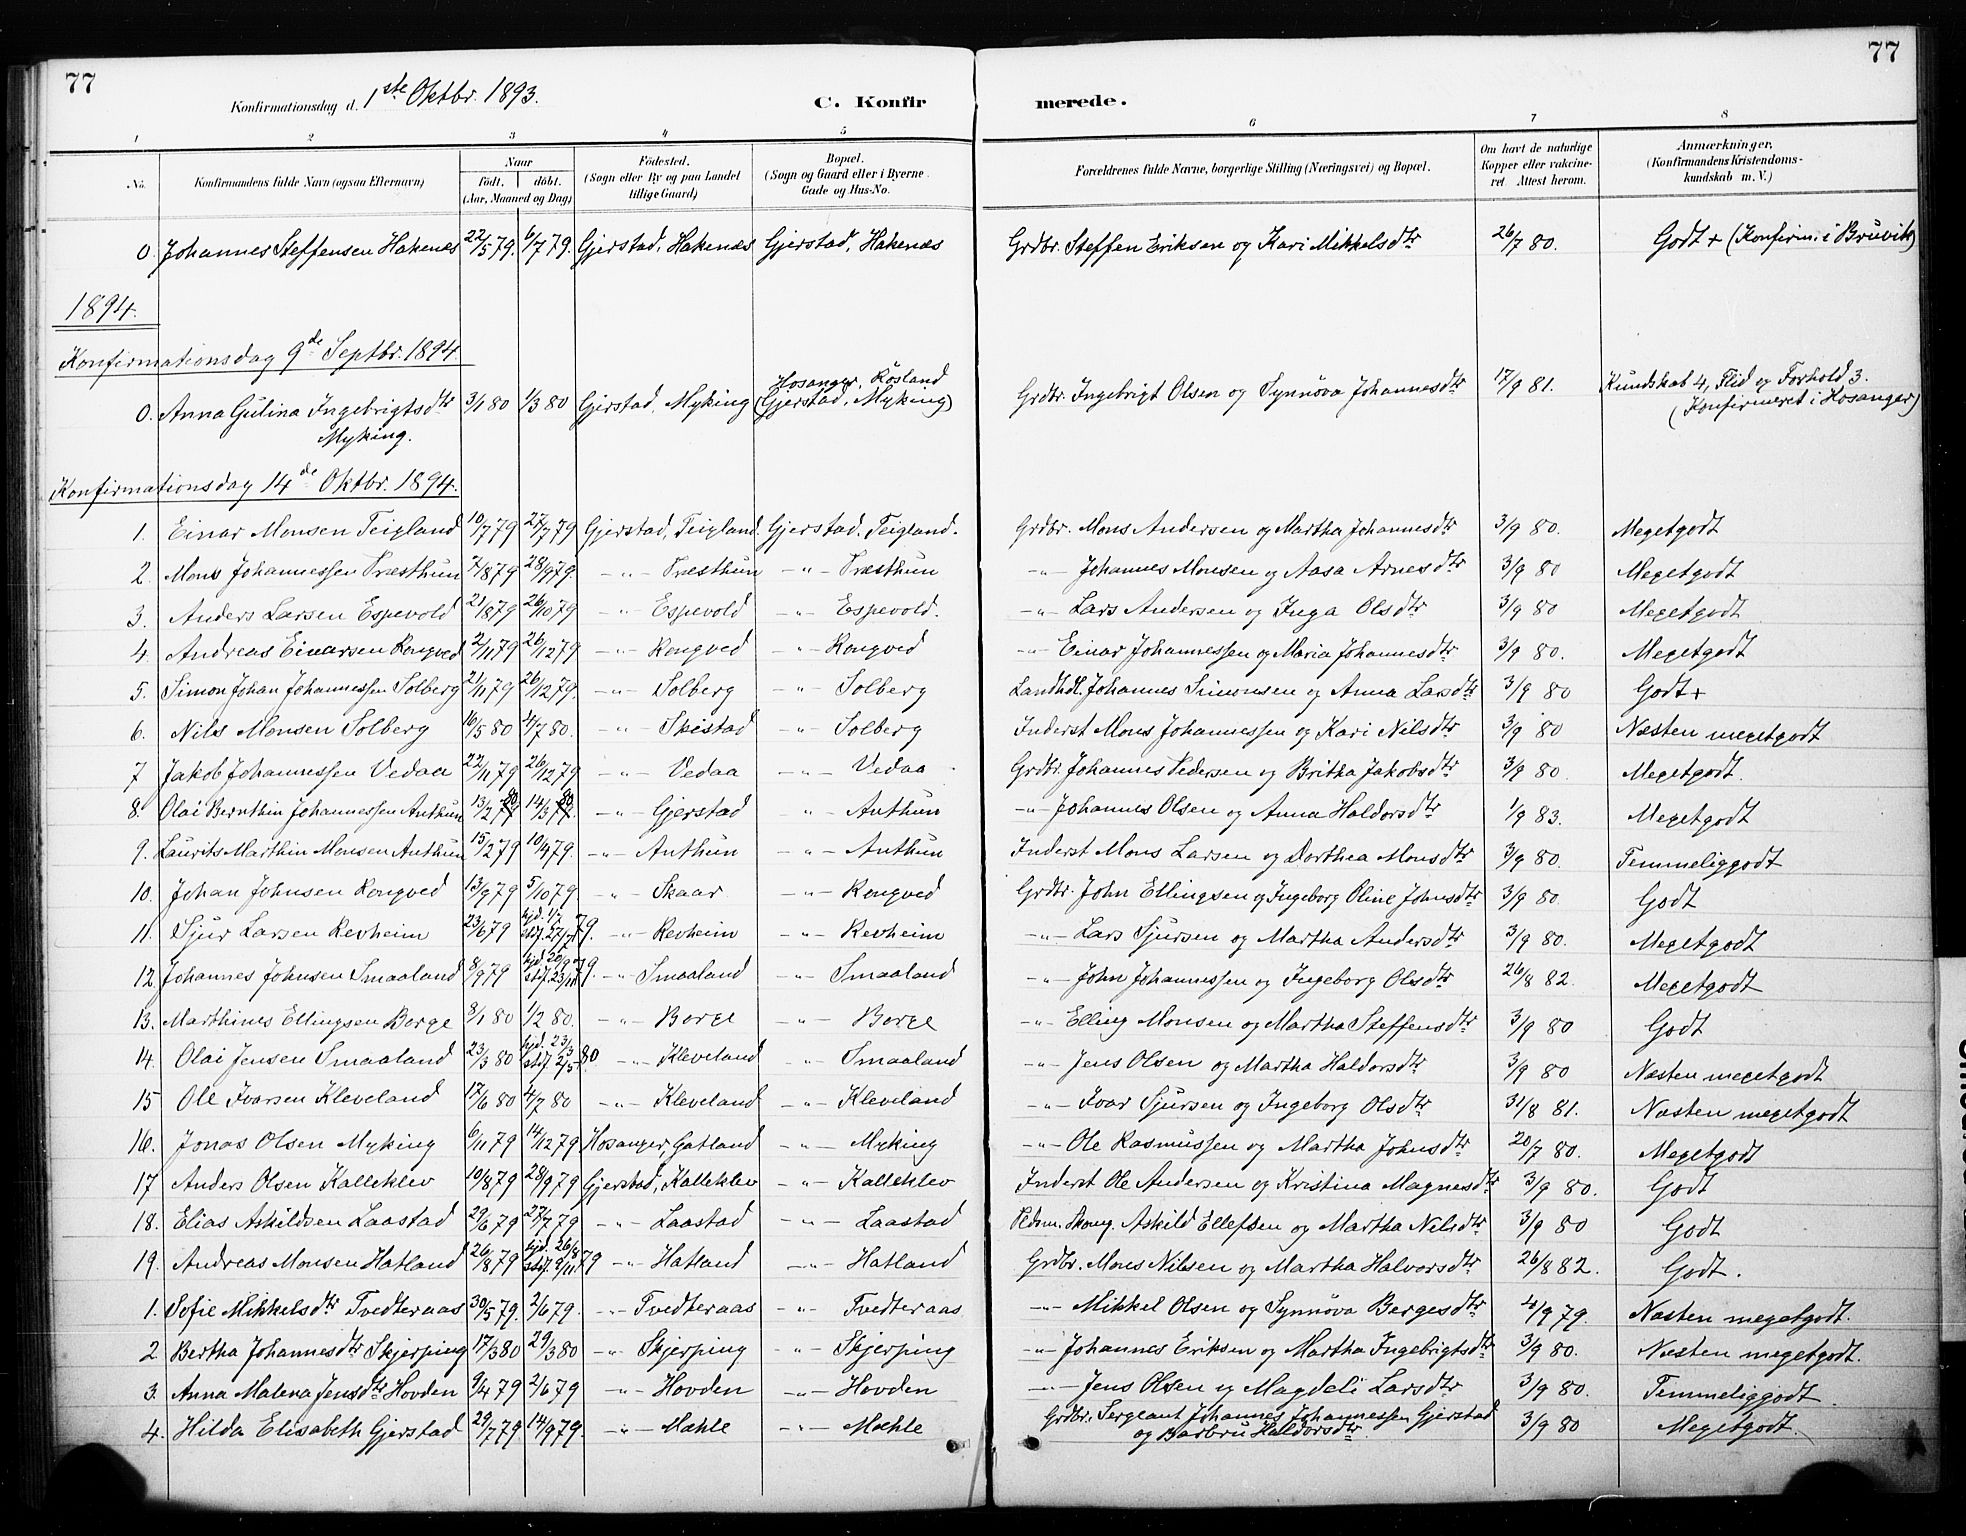 77
77
Konfirmationsdag d. 1ste Oktbr. 1893.
C. Konfirmerede.
1 2 3 4 5 6 7 8
No. Konfirmandens fulde Navn (ogsaa Efternavn) Naar Födt. döbt. (Aar, Maaned og Dag) Födested. (Sogn eller By og paa Landet tillige Gaard) Bopæl. (Sogn og Gaard eller i Byerne Gade og Hus-No. Forældrenes fulde Navne, borgerlige Stilling (Næringsvei) og Bopæl. Om havt de naturlige Kopper eller vakcineret Attest herom. Anmærkninger, (Konfirmandens Kristendomskundskab m. V.)
0. Johannes Steffensen Hakenæs 22/5 79. 6/7 79. Gjerstad, Hakenæs Gjerstad, Hakenæs Grdbr. Steffen Eriksen og Kari Mikkelsdtr 26/7 80. Godt + (Konfirm. i Bruvik)
1894.
Konfirmationsdag 9de Septbr. 1894.
0. Anna Gulina Ingebrigtsdtr Myking. 3/1 80 1/3 80 Gjerstad, Myking Hosanger, Røsland (Gjerstad, Myking) Grdbr. Ingebrigt Olsen og Synnöva Johannesdtr 17/9 81. Kundskab 4, Flid og Forhold 3. (Konfirmeret i Hosanger)
Konfirmationsdag 14de Oktbr. 1894.
1. Einar Monsen Teigland 10/7 79 27/7 79 Gjerstad, Teigland. Gjerstad, Teigland. Grdbr. Mons Andersen og Martha Johannesdtr 3/9 80. Megetgodt
2. Mons Johannessen Træsthun 7/8 79 28/9 79. -"- Træsthun -"- Træsthun -"- Johannes Monsen og Aasa Arnesdtr 3/9 80 Megetgodt
3. Anders Larsen Espevold 21/8 79 26/10 79 -"- Espevold -"- Espevold. -"- Lars Andersen og Inga Olsdtr 3/9 80 Megetgodt
4. Andreas Einarsen Rongved 2/11 79 26/12 79 -"- Rongved -"- Rongved -"- Einar Johannessen og Maria Johannesdtr 3/9 80. Megetgodt
5. Simon Johan Johannessen Solberg 21/11 79 26/12 79. -"- Solberg -"- Solberg Landhdl. Johannes Simonsen og Anna Larsdtr 3/9 80 Godt+
6. Nils Monsen Solberg 16/5 80 4/7 80. -"- Skistad -"- Solberg Inderst Mons Johannessen og Kari Nilsdtr 3/9 80 Næsten megetgodt
7 Jakob Johannessen Vedaa 22/11 79 26/12 79 -"- Vedaa -"- Vedaa Grdbr. Johannes Pedersen og Britha Jakobsdtr 3/9 80. Megetgodt.
8. Olai Bernthin Johannessen Anthun 13/2 80 14/3 80 -"- Gjerstad -"- Anthun -"- Johannes Olsen og Anna Haldorsdtr 1/9 83. Megetgodt
9. Laurits Marthin Monsen Anthun 15/2 79 10/4 79. -"- Anthun -"- Anthun Inderst Mons Larsen og Dorthea Monsdtr 3/9 80. Temmeliggodt
10. Johan Johnsen Rongved 13/9 79 5/10 79. -"- Skaar -"- Rongved Grdbr. John Ellingsen og Ingeborg Oline Johnsdtr 3/9 80. Godt
11. Sjur Larsen Revheim 23/6 79 hjd. 1/7 stf. 27/7 79. -"- Revheim -"- Revheim -"- Lars Sjursen og Martha Andersdtr 3/9 80. Megetgodt
12. Johannes Johnsen Smaaland 8/9 79 hjd. 20/9 stf. 23/11 79. -"- Smaaland -"- Smaaland -"- John Johannessen og Ingeborg Olsdtr 26/8 82. Megetgodt
13. Marthines Ellingsen Borge 3/1 80 1/2 80. -"- Borge -"- Borge -"- Elling Monsen og Martha Steffensdtr 3/9 80 Godt
14. Olai Jensen Smaaland 23/3 80 hjd. 23/3 stf. 2/5 80 -"- Kleveland -"- Smaaland -"- Jens Olsen og Martha Haldorsdtr 3/9 80 Næsten megetgodt
15 Ole Ivarsen Kleveland 17/6 80 4/7 80 -"- Kleveland -"- Kleveland -"- Ivar Sjursen og Ingeborg Olsdtr 31/8 81. Næsten megetgodt
16. Jonas Olsen Myking 6/11 79 14/12 79 Hosanger, Gatland -"- Myking -"- Ole Rasmussen og Martha Johnsdtr 20/7 80. Megetgodt
17 Anders Olsen Kalleklev 10/8 79 28/9 79 Gjerstad, Kalleklev -"- Kalleklev Inderst Ole Andersen og Kristina Magnesdtr 3/9 80. Godt
18. Elias Askildsen Laastad 29/6 79 27/7 79 -"- Laastad -"- Laastad Askild Ellefsen og Martha Nilsdtr 3/9 80 Godt
19. Andreas Monsen Hatland 26/8 79 hjd. 26/8 stf. 9/11 79 -"- Hatland -"- Hatland Grdbr. Mons Nilsen og Martha Halvorsdtr 26/8 82. Godt.
1. Sofie Mikkelsdtr Tvedteraas 30/5 79. 2/6 79. -"- Tvedteraas -"- Tvedteraas -"- Mikkel Olsen og Synnöva Bergesdtr 4/9 79. Næsten megetgodt.
2. Bertha Johannesdtr Skjerping 17/3 80 29/3 80 -"- Skjerping -"- Skjerping -"- Johannes Eriksen og Martha Ingebrigtsdtr 3/9 80. Næsten megetgodt.
3. Anna Malena Jensdtr Hovden 9/4 79 2/6 79 -"- Hovden -"- Hovden -"- Jens Olsen og Magdeli Larsdtr 3/9 80. Temmeliggodt.
4. Hilda Elisabeth Gjerstad 29/7 79. 14/9 79. -"- Mæhle -"- Mæhle Grdbr. Sergeant Johannes Johannessen Gjerstad og Barbru Haldorsdtr 3/9 80 Megetgodt.